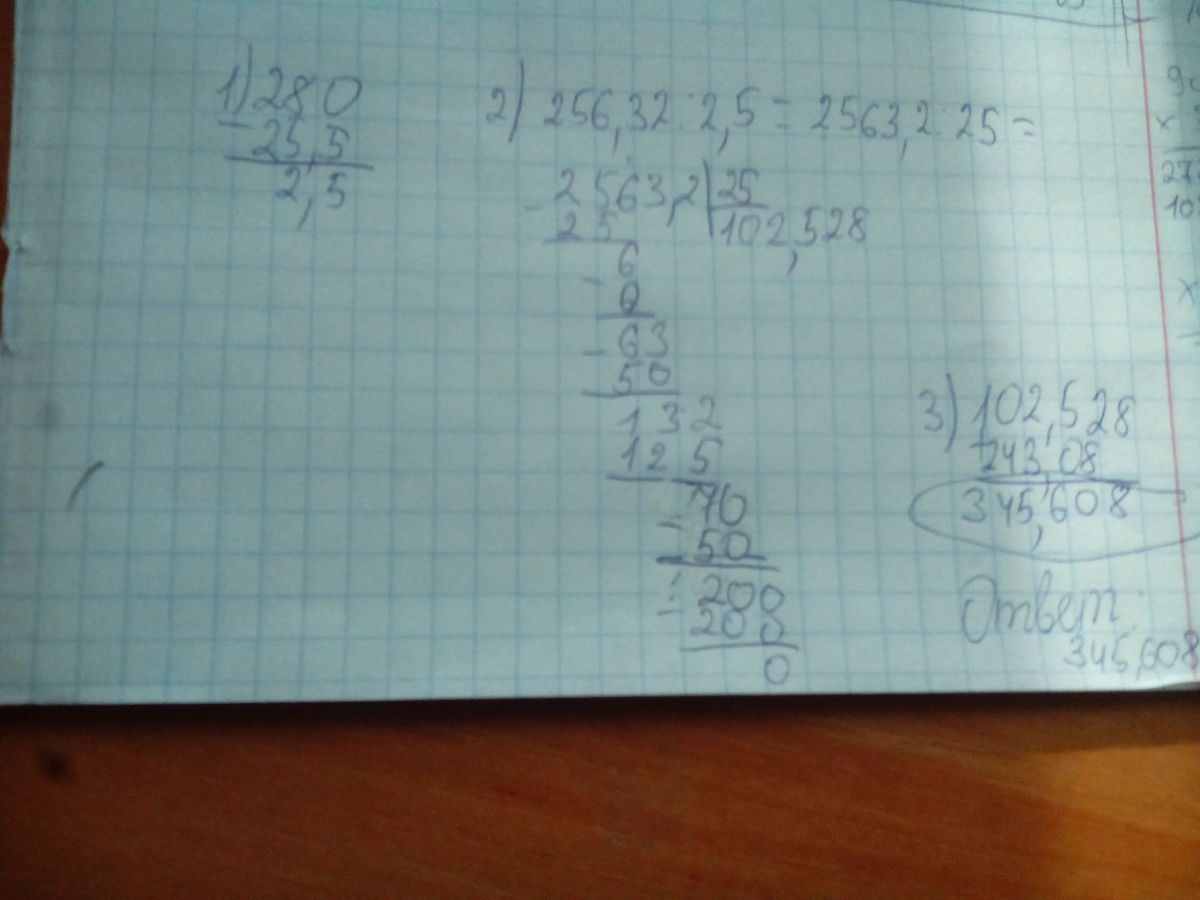 1) 280
- 25,5
2,5
2) 256,32 : 2,5 = 2563,2 : 25 =
- 2563,2 | 25
25 102,528
- 6
0
- 63
50
132
125
- 70
50
- 200
200
0
3) 102,528
243,08
345,608
Ответ:
345,608